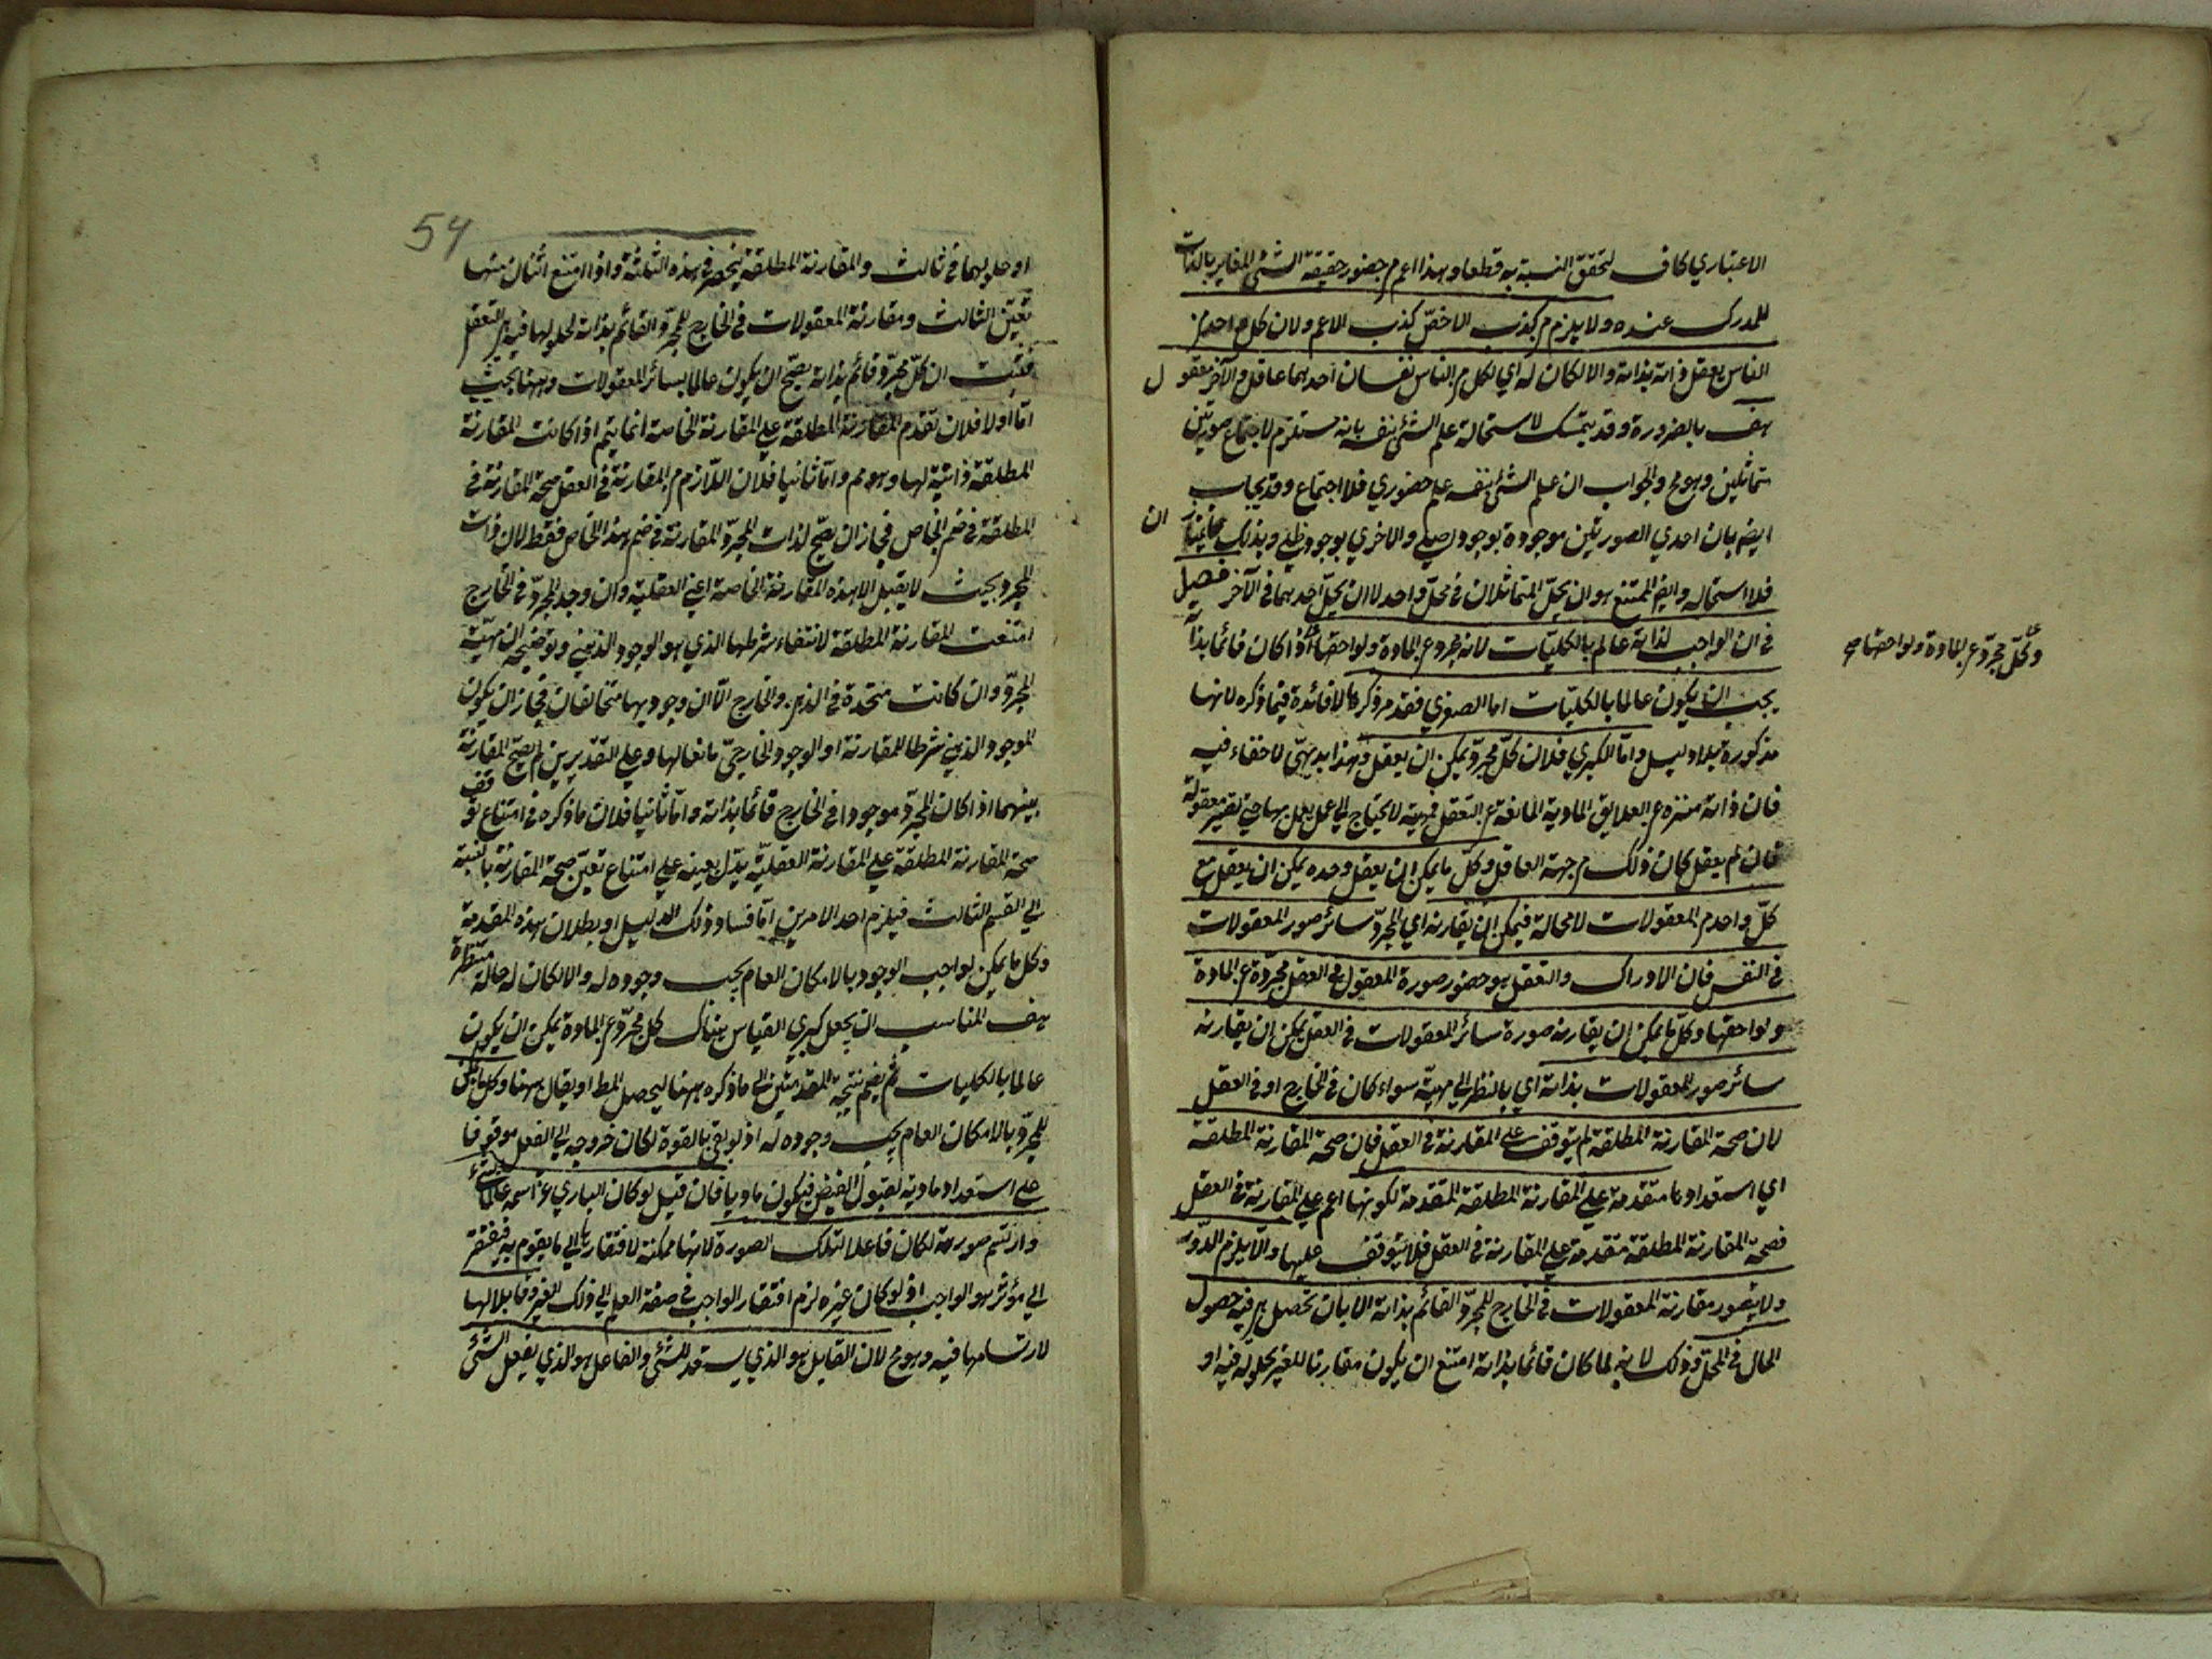 الاعتباري كاف لتحقق النسبة به قطعا وهذا اعم من حضور حقيقة الشئ المغاير بالذات
للمدرك عنده ولا يلزم من كذب الاخصّ كذب الاعم ولان كل واحد من
الناس يعقل ذاته بذاته والا لكان له اي لكل من الناس نفسان احدهما عاقل والآخر معقول
هف بالضرورة وقد يتمسك لاستحالة علم الشئ بنفسه بانه مستلزم لاجتماع صورتين
متماثلين وهو مح والجواب ان علم الشئ بنفسه علم حضوري فلا اجتماع وقد يجاب
ايضم بان احدي الصورتين موجودة بوجود اصيلي والاخري بوجود ظلي وبذلك يمتازان
فلا استحاله وايضم الممتنع هو ان يحلّ المتماثلان في محلّ واحد لا ان يحلّ احدهما في الآخر فصل
في ان الواجب لذاته عالم بالكليّات لانه مجرد عن المادة ولواحقها اذا كان قائما بذاته
وكلّ مجرّد عن المادة ولواحقها صح
يجب ان يكون عالما بالكليّات اما الصغري فقد مر ذكرها لا فائدة فيما ذكره لانها
مذكورة بلا دليل وامّا الكبري فلان كلّ مجرّد يمكن ان يعقل وهذا بديهيّ لا خفاء فيه
فان ذاته منزه عن العلايق المادية المانعة عن التعقل فمهيته لا يحتاج الي عمل يعمل بها حتي تصير معقولة
فان لم يعقل كان ذلك من جهة العاقل وكلّ ما يمكن ان يعقل وحده يمكن ان يعقل مع
كلّ واحد من المعقولات لا محالة فيمكن ان يقارنه اي المجرّد سائر صور المعقولات
في النفس فان الادراك والتعقل هو حضور صورة المعقول في العقل مجرّدة عن المادة
ولواحقها وكلّ ما يمكن ان يقارنه صورة سائر المعقولات في العقل يمكن ان يقارنه
سائر صور المعقولات بذاته اي بالنظر الي مهيّته سواء كان في الخارج او في العقل
لان صحة المقارنة المطلقة لم يتوقف علي المقارنة في العقل فان صحة المقارنة المطلقة
اي استعدادها متقدمة علي المقارنة المطلقة المتقدمة لكونها اعم علي المقارنة في العقل
فصحة المقارنة المطلقة متقدمة علي المقارنة في العقل فلا يتوقف عليها والا يلزم الدّور
ولا يتصور مقارنة المعقولات في الخارج للمجرّد القائم بذاته الا بان تحصل هي فيه حصول
الحال في المحلّ وذلك لانه لما كان قائما بذاته امتنع ان يكون مقارنا للغير بحلوله فيه او
54
او حلولهما في ثالث والمقارنة المطلقة ينحصر في هذه الثلثة واذا امتنع اثنان منها
تعيّن الثالث ومقارنة المعقولات في الخارج للمجرّد القائم بذاته لحلولها فيه هي التعقل
فثبت ان كلّ مجرّد قائم بذاته يصحّ ان يكون عالما بسائر المعقولات وههنا بحيث
امّا اولا فلان تقدم المقارنة المطلقة علي المقارنة الخاصة انما يتم اذا كانت المقارنة
المطلقة ذاتية لها وهو مم وامّا ثانيا فلان اللّازم من المقارنة في العقل صحة المقارنة في
المطلقة في ضم الخاص فجاز ان يصحّ لذات المجرّد المقارنة في ضم هذا الخاص فقط لان ذات
المجرد بحيث لا يقبل الا هذه المقارنة الخاصة اعني العقلية وان وجد المجرّد في الخارج
امتنعت المقارنة المطلقة لانتفاء شرطها الذي هو الوجود الذهني وتوضيحه ان مهيّة
المجرّد وان كانت متحدة في الذهن والخارج الّا ان وجوديها متخالفان فجاز ان يكون
الموجود الذهني شرطا للمقارنة او الوجود الخارجيّ مانعا لها وعلي التقديرين لم يصحّ المقارنة
بينهما اذا كان المجرّد موجودا في الخارج قائما بذاته وامّا ثانيا فلان ما ذكره في امتناع توقف
صحة المقارنة المطلقة علي المقارنة العقليّة يدّل بعينه علي امتناع تعيّن صحة المقارنة بالنسبة
الي القسم الثالث فيلزم احد الامرين امّا فساد ذلك الدليل او بطلان هذه المقدمة
وكل ما يمكن لواجب الوجود بالامكان العام يجب وجوده له والا لكان له حالة منتظرة
هف المناسب ان يجعل كبري القياس هناك كل مجرّد عن المادة يمكن ان يكون
عالما بالكليات ثم يضم نتيجة المقدمتين الي ما ذكره ههنا ليحصل المط او يقال ههنا وكل ما يمكن
للمجرّد بالامكان العام يجب وجوده له اذ لو بقي بالقوة لكان خروجه الي الفعل موقوفا
علي استعداد مادية لقبول الفيض فيكون ماديا فان قيل لو كان الباري عز اسمه عالما بشئ
وارتسم صورته لكان فاعلا لتلك الصورة لانها ممكنة لافتقارها الي ما يقوم به فيفتقر
الي مؤثر هو الواجب اذ لو كان غيره لزم افتقار الواجب في صفة العلم الي ذلك الغير وقابلا لها
لارتسامها فيه وهو مح لان القابل هو الذي يستعد للشئ والفاعل هو الذي يفعل الشئ